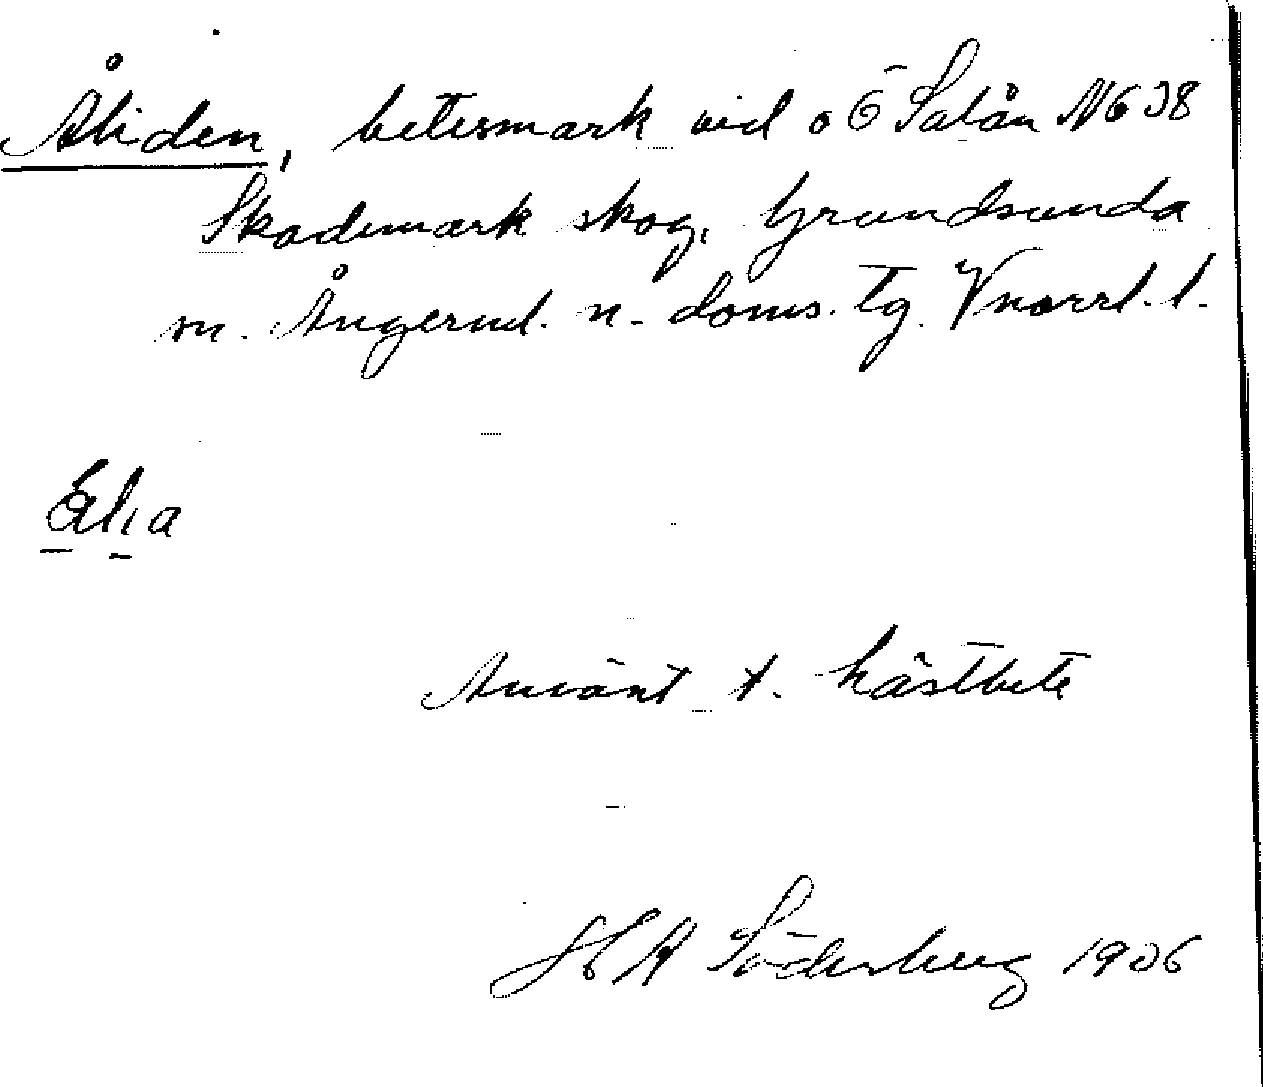 Åliden, betesmark vid o Ö Salån NG 38
Skademark skog, Grundsunda
sn. Ångerml. n. doms. tg. Vnorrl. l.
Använt t. hästbete
H A Söderberg 1906